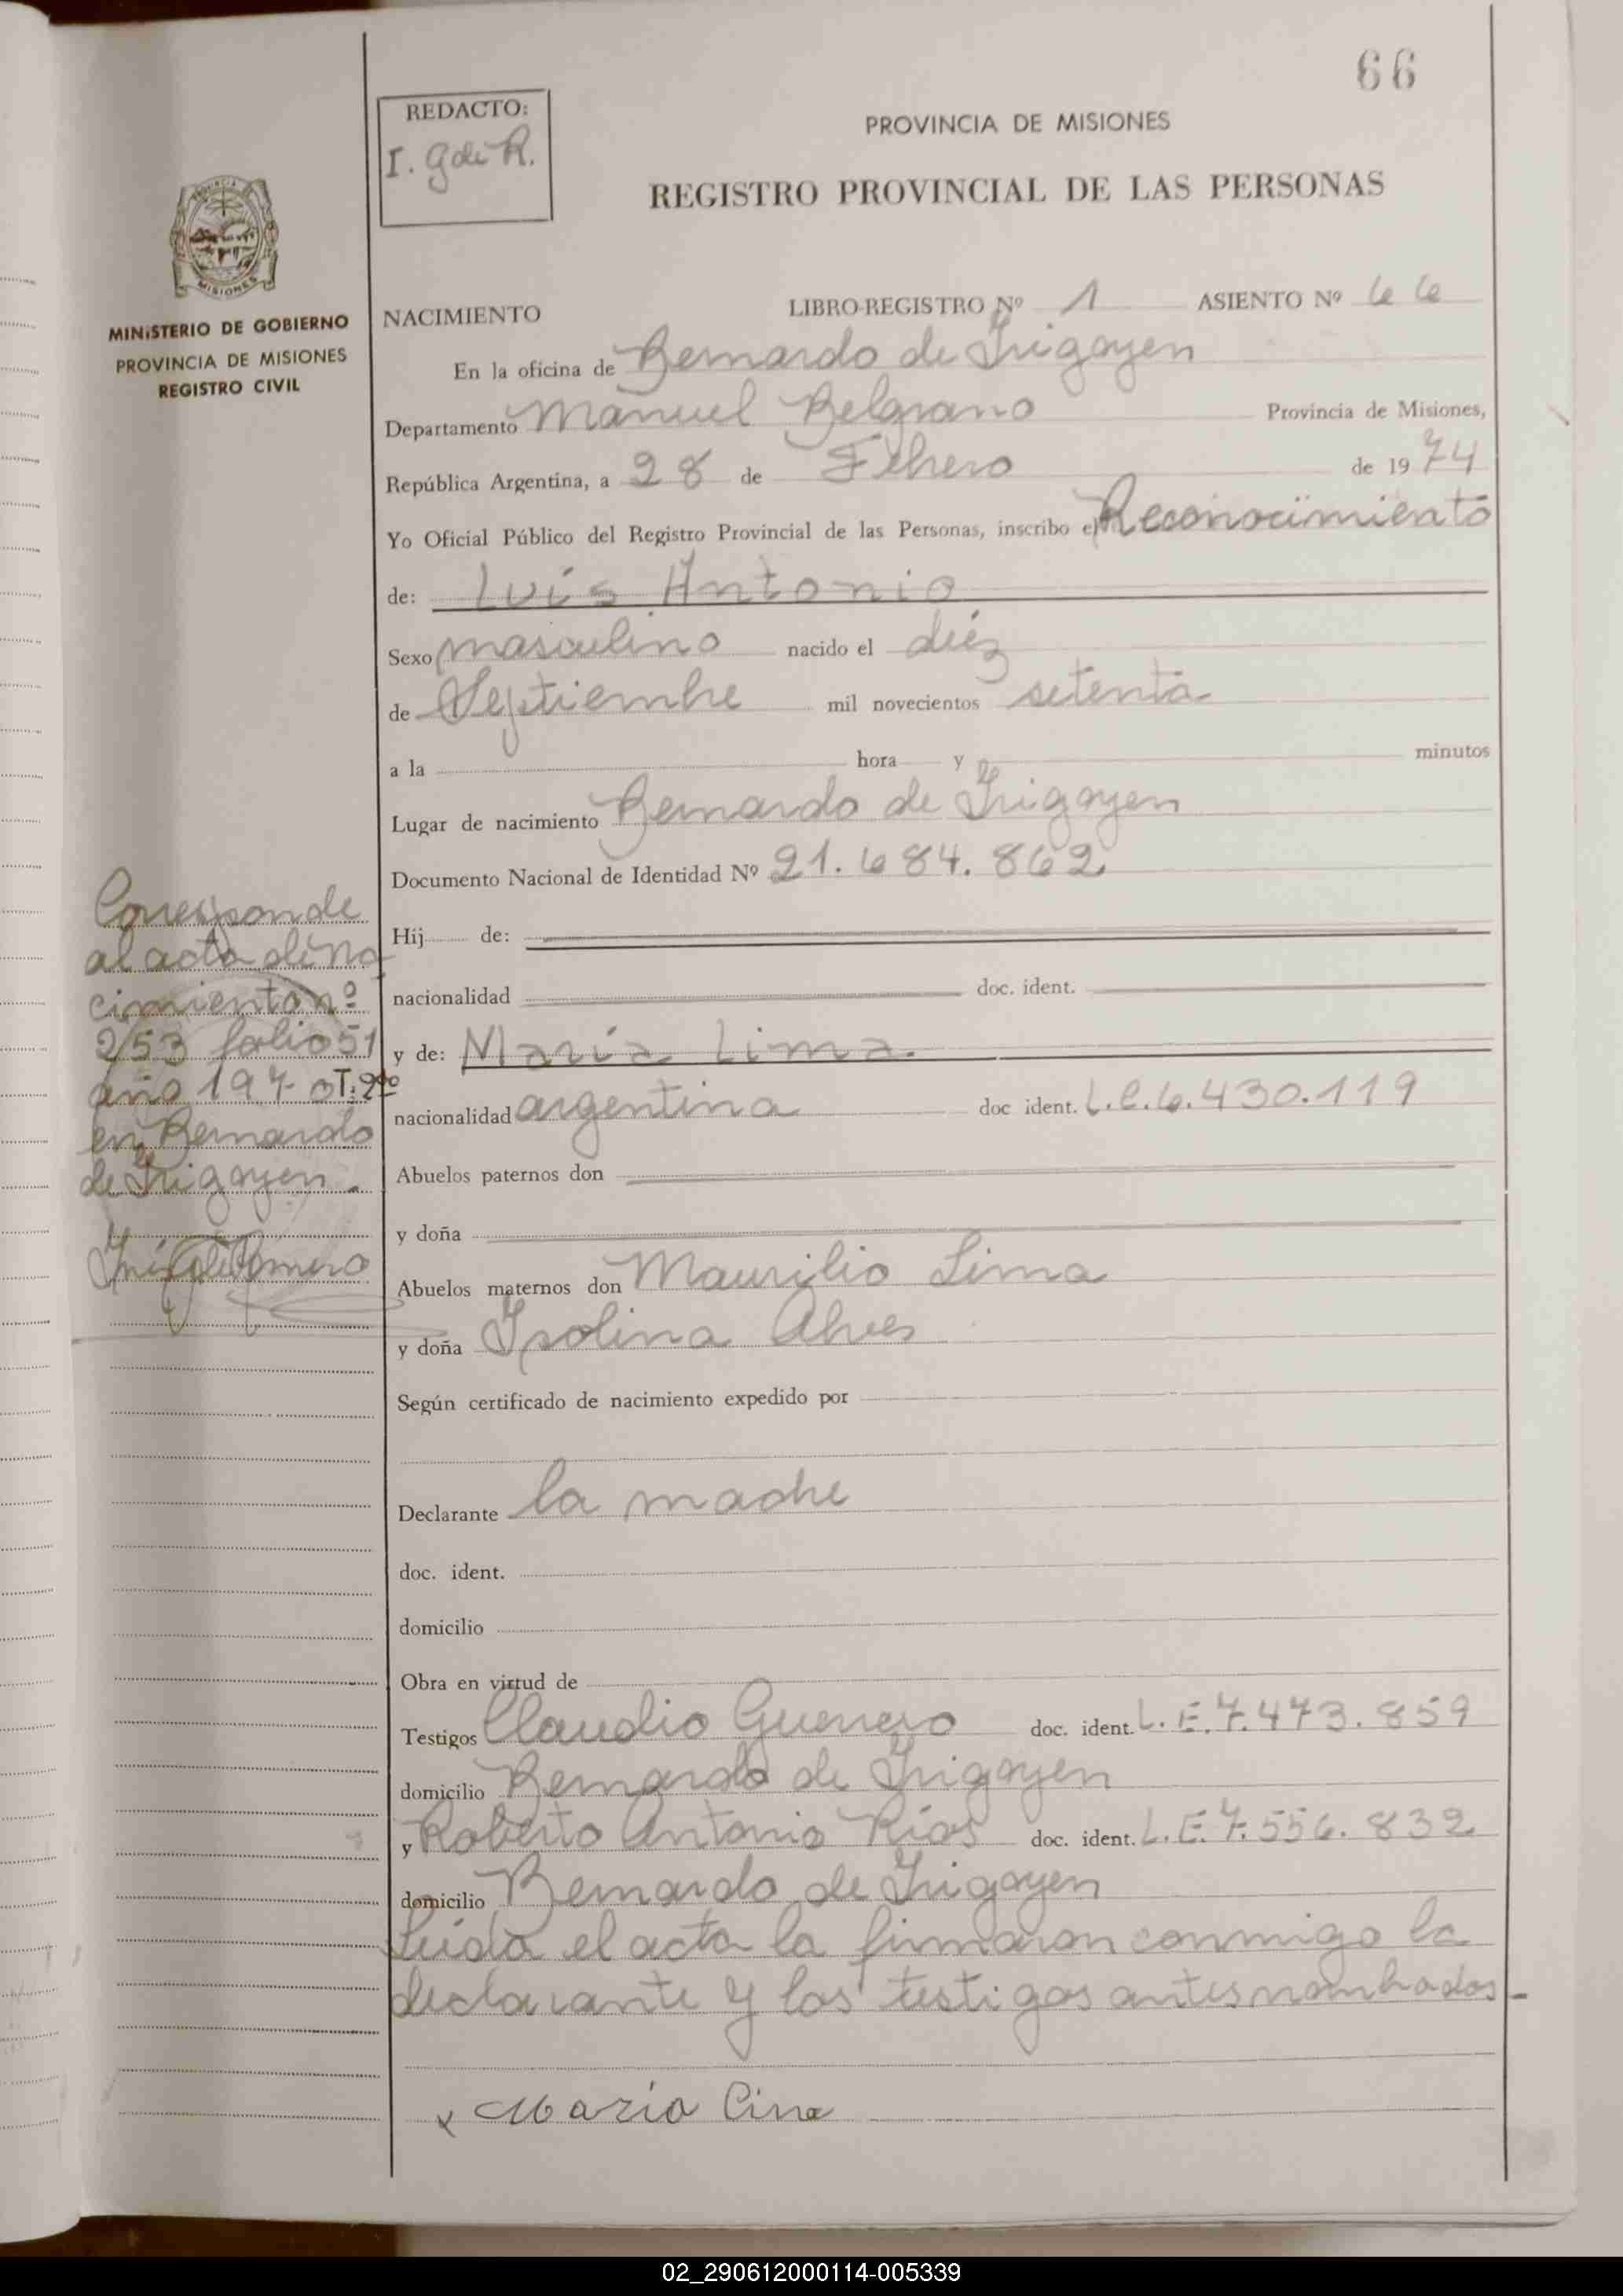 66
REDACTO:
I. G de R.
PROVINCIA DE MISIONES
REGISTRO PROVINCIAL DE LAS PERSONAS
MISIONES
MINISTERIO DE GOBIERNO
PROVINCIA DE MISIONES
REGISTRO CIVIL
NACIMIENTO LIBRO-REGISTRO Nº 1 ASIENTO Nº 66
En la oficina de Bernardo de Irigoyen
Departamento Manuel Belgrano Provincia de Misiones,
República Argentina, a 28 de Febrero de 1974
Yo Oficial Público del Registro Provincial de las Personas, inscribo el Reconocimiento
de: Luis Antonio
Sexo masculino nacido el diéz
de Septiembre mil novecientos setenta
a la hora y minutos
Lugar de nacimiento Bernardo de Irigoyen
Documento Nacional de Identidad Nº 21.684.862
Hij de:
nacionalidad doc. ident.
y de: María Lima.
nacionalidad argentina doc ident. L.C.6.430.119
Abuelos paternos don
y doña
Abuelos maternos don Maurilio Lima
y doña Isolina Alves
Según certificado de nacimiento expedido por
Declarante la madre
doc. ident.
domicilio
Obra en virtud de
Testigos Claudio Guerrero doc. ident. L.E.7.473.859
domicilio Bernardo de Irigoyen
y Roberto Antonio Ríos doc. ident. L.E.7.556.832
domicilio Bernardo de Irigoyen
Leída el acta la firmaron conmigo la
declarante y los testigos antes nombrados-
x María Lima
Corresponde
al acta de na
cimiento nº
253 folio 51
año 197 T: 2do
en Bernardo
de Irigoyen.
Inés G de Romero
02_290612000114-005339